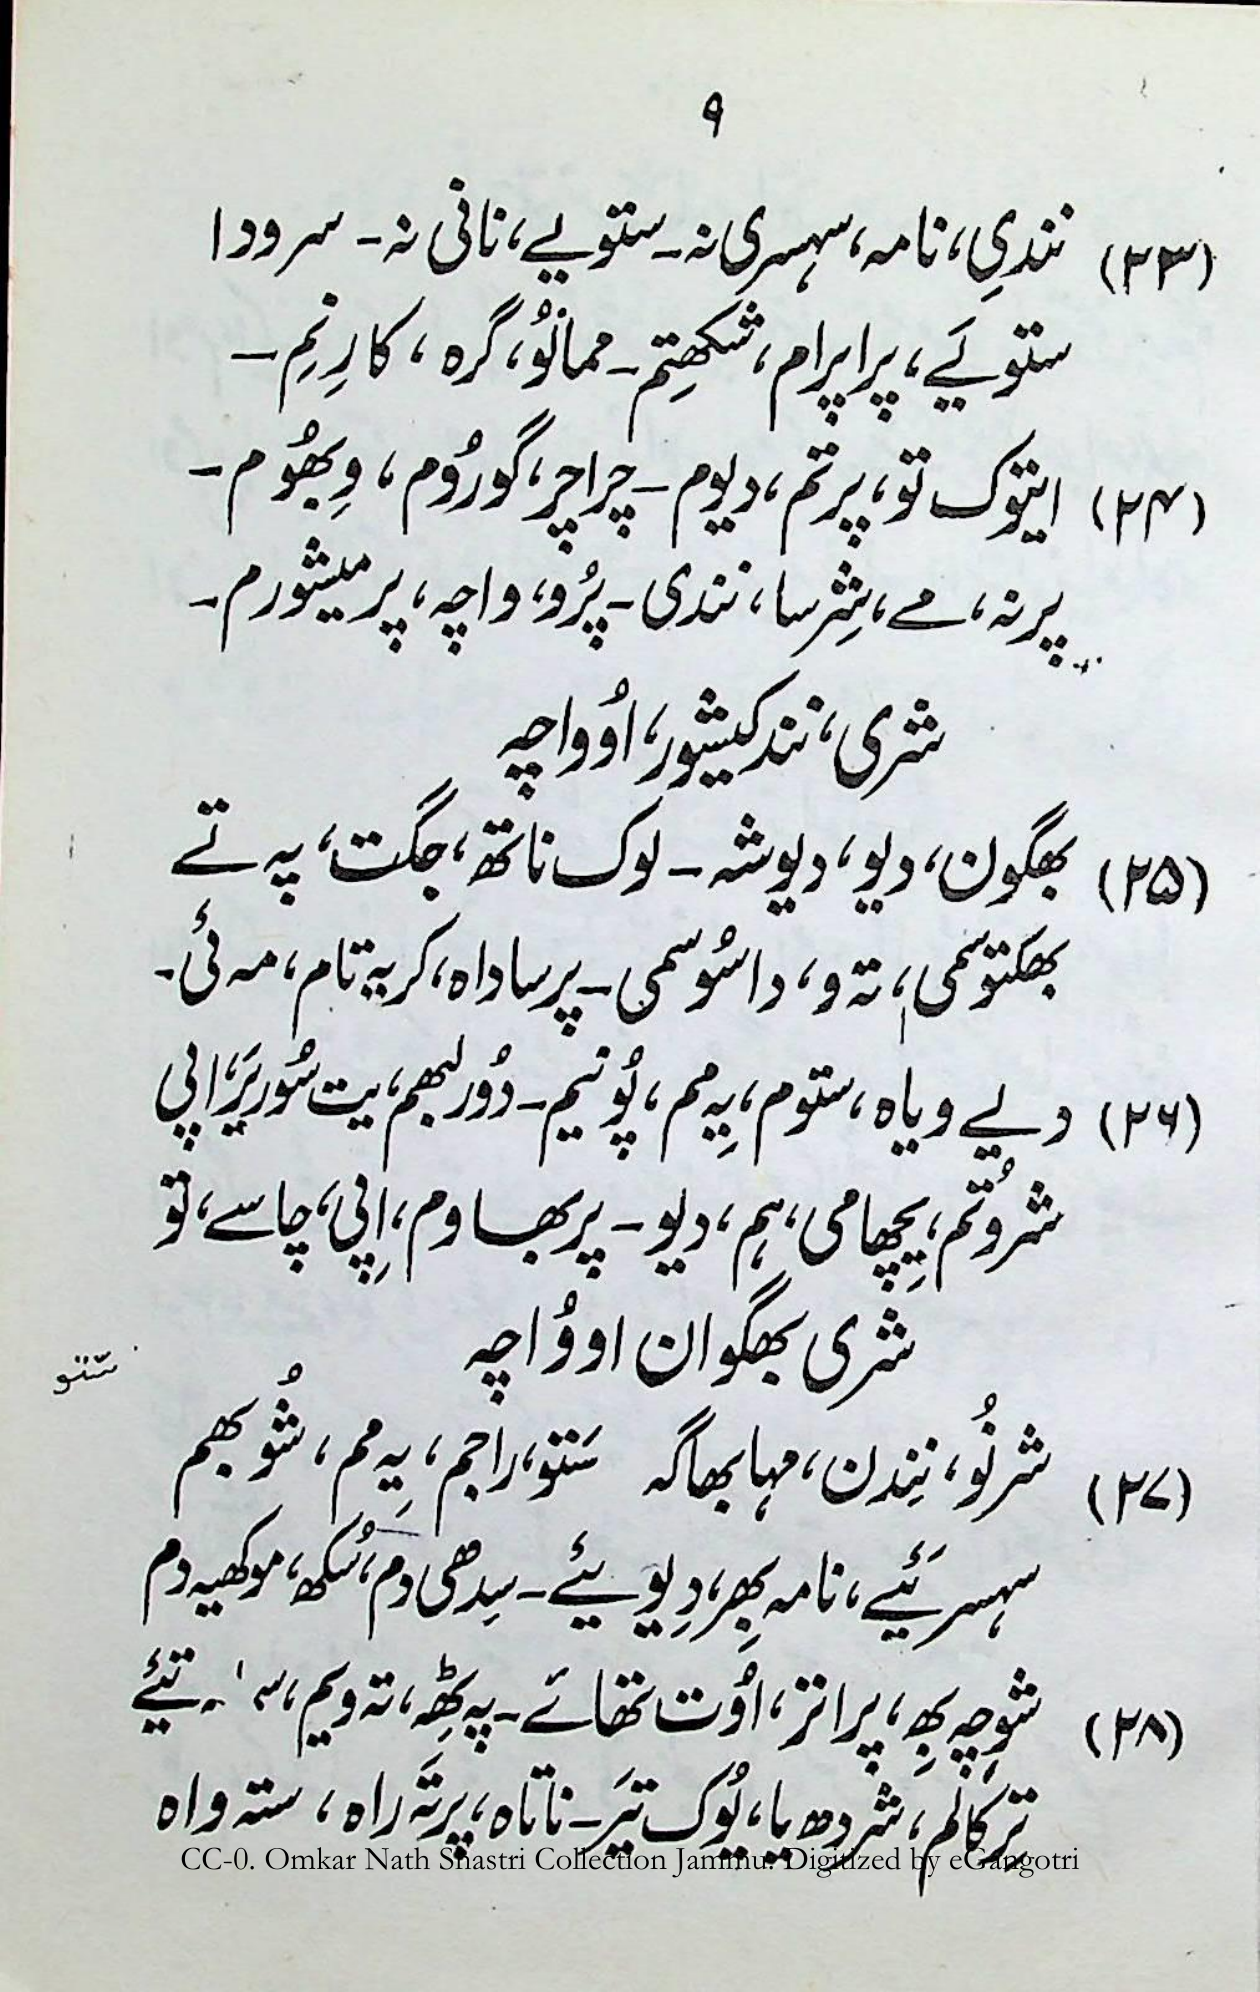 ۹
(۲۳) نندیِ، نامہ، سہسری نہ۔ ستویے، نانی نہ۔ سرودا
ستویَے، پراپرام، شکھتِم۔ ممانوُ، گرہ، کارِنِم۔
(۲۴) ایتوک تو، پرتم، دیوم۔ چراچر، گورُوم، وِبھُوم۔
پرنہ، مے، شِرسا، نندی۔ پرُو، واچہ، پرمیشورم۔
شری، نندکیشور، اوُواچہ
(۲۵) بھگون، دیو، دیوشہ۔ لوک ناتھ، جگت، پہ تے
بھکتوسمی، تہ و، داسُوسمی۔ پرساداہ، کریہ تام، مہ ئی۔
(۲۶) دیے ویاہ، ستوم، یِہ مم، پُونیم۔ دُورلبھم، یت سُوریَر، اپی
شرُوتم، یچھامی، ہم، دیو۔ پربھاوم، اِپی، چاسے، تو
شری بھگوان اووُاچہ
سَتو
(۲۷) شرنُو، نِندن، مہابھاگہ سَتو، راجم، یِہ مم، شُوبھم
سہسرَئیے، نامہ بھِر، دِیویئے۔ سِدھی دم، سُکھ، موکھیہ دم
(۲۸) شوچِہ بھِ، پراتر، اُوت تھائے۔ پہ ٹھِہ، تہ ویم، تیئے
ترکالم، شردھ یا، یُوک تیَر۔ ناتاہ، پرتَہ راہ، ستہ واہ
CC-0. Omkar Nath Shastri Collection Jammu. Digitized by eGangotri